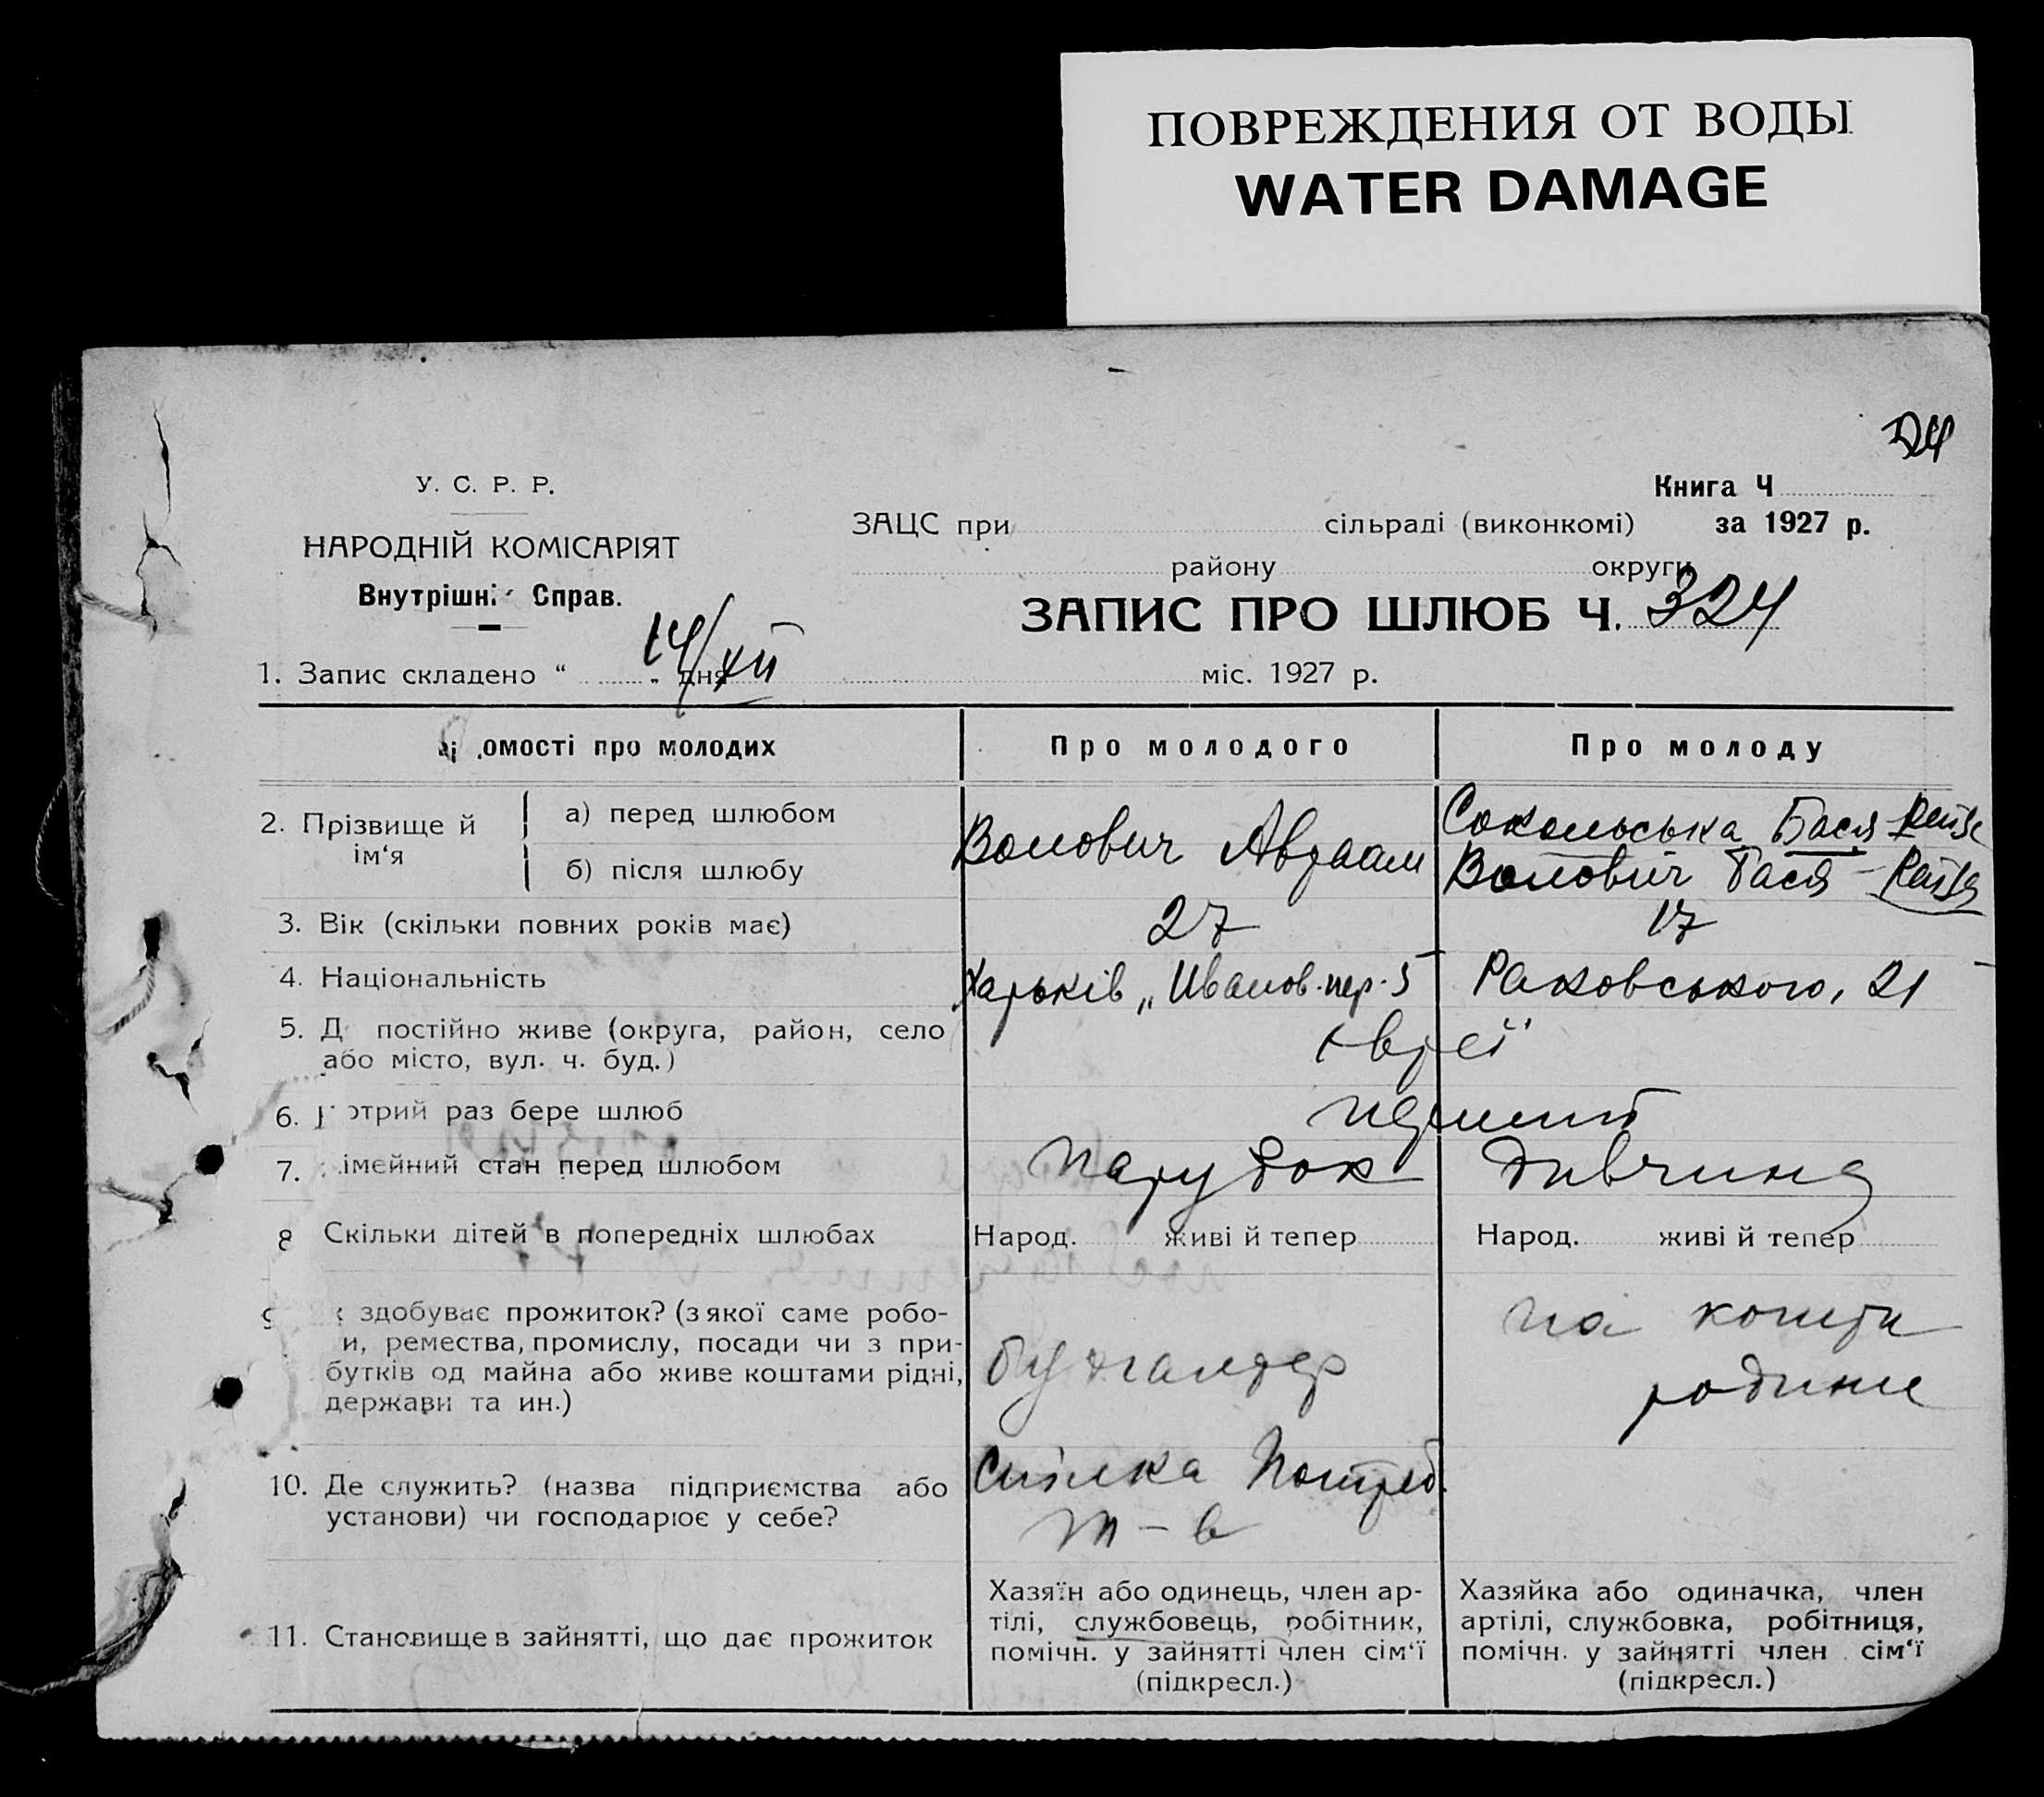 ПОВРЕЖДЕНИЯ ОТ ВОДЫ
WATER DAMAGE
У. С. Р. Р.
НАРОДНІЙ КОМІСАРІЯТ
Внутрішні Справ.
Книга Ч
ЗАЦС при сільраді (виконкомі) за 1927 р.
району округи
ЗАПИС ПРО ШЛЮБ Ч. 324
1. Запис складено “ 14/XII „ дня міс. 1927 р.
омості про молодих Про молодого Про молоду
2. Прізвище й ім‘я
а) перед шлюбом
б) після шлюбу
Волович Авраам
Сокольська Бася-Рейзе
Волович Бася - Рейзя
3. Вік (скільки повних років має) 27 17
4. Національність Харьків „Иванов. пер. 5 Раковського, 21
5. Д постійно живе (округа, район, село
або місто, вул. ч. буд.)
євреї
6. отрий раз бере шлюб перший
7. імейний стан перед шлюбом парубок дивчина
8 Скільки дітей в попередніх шлюбах Народ. живі й тепер Народ. живі й тепер
9 здобуває прожиток? (з якої саме робо-
и, ремества, промислу, посади чи з при-
бутків од майна або живе коштами рідні,
держави та ин.)
бухгалтер
на кошти
родини
10. Де служить? (назва підприємства або
установи) чи господарює у себе?
Спілка Потреб.
т-в
11. Становище в зайнятті, що дає прожиток
Хазяїн або одинець, член ар-
тілі, службовець, робітник,
помічн. у зайнятті член сім‘ї
(підкресл.)
Хазяйка або одиначка, член
артілі, службовка, робітниця,
помічн. у зайнятті член сім‘ї
(підкресл.)